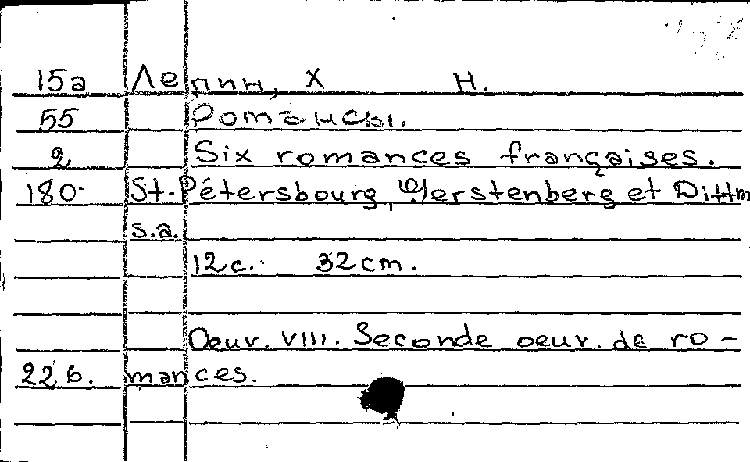 15а Лепин, Х Н.
55 Романсы.
2 Six romances françaises.
180. St.-Pétersbourg, Gerstenberg et Dittm
s.a.
12с. 32cm.
Oeuv. VIII. Seconde oeuv. de ro-
22б. mances.